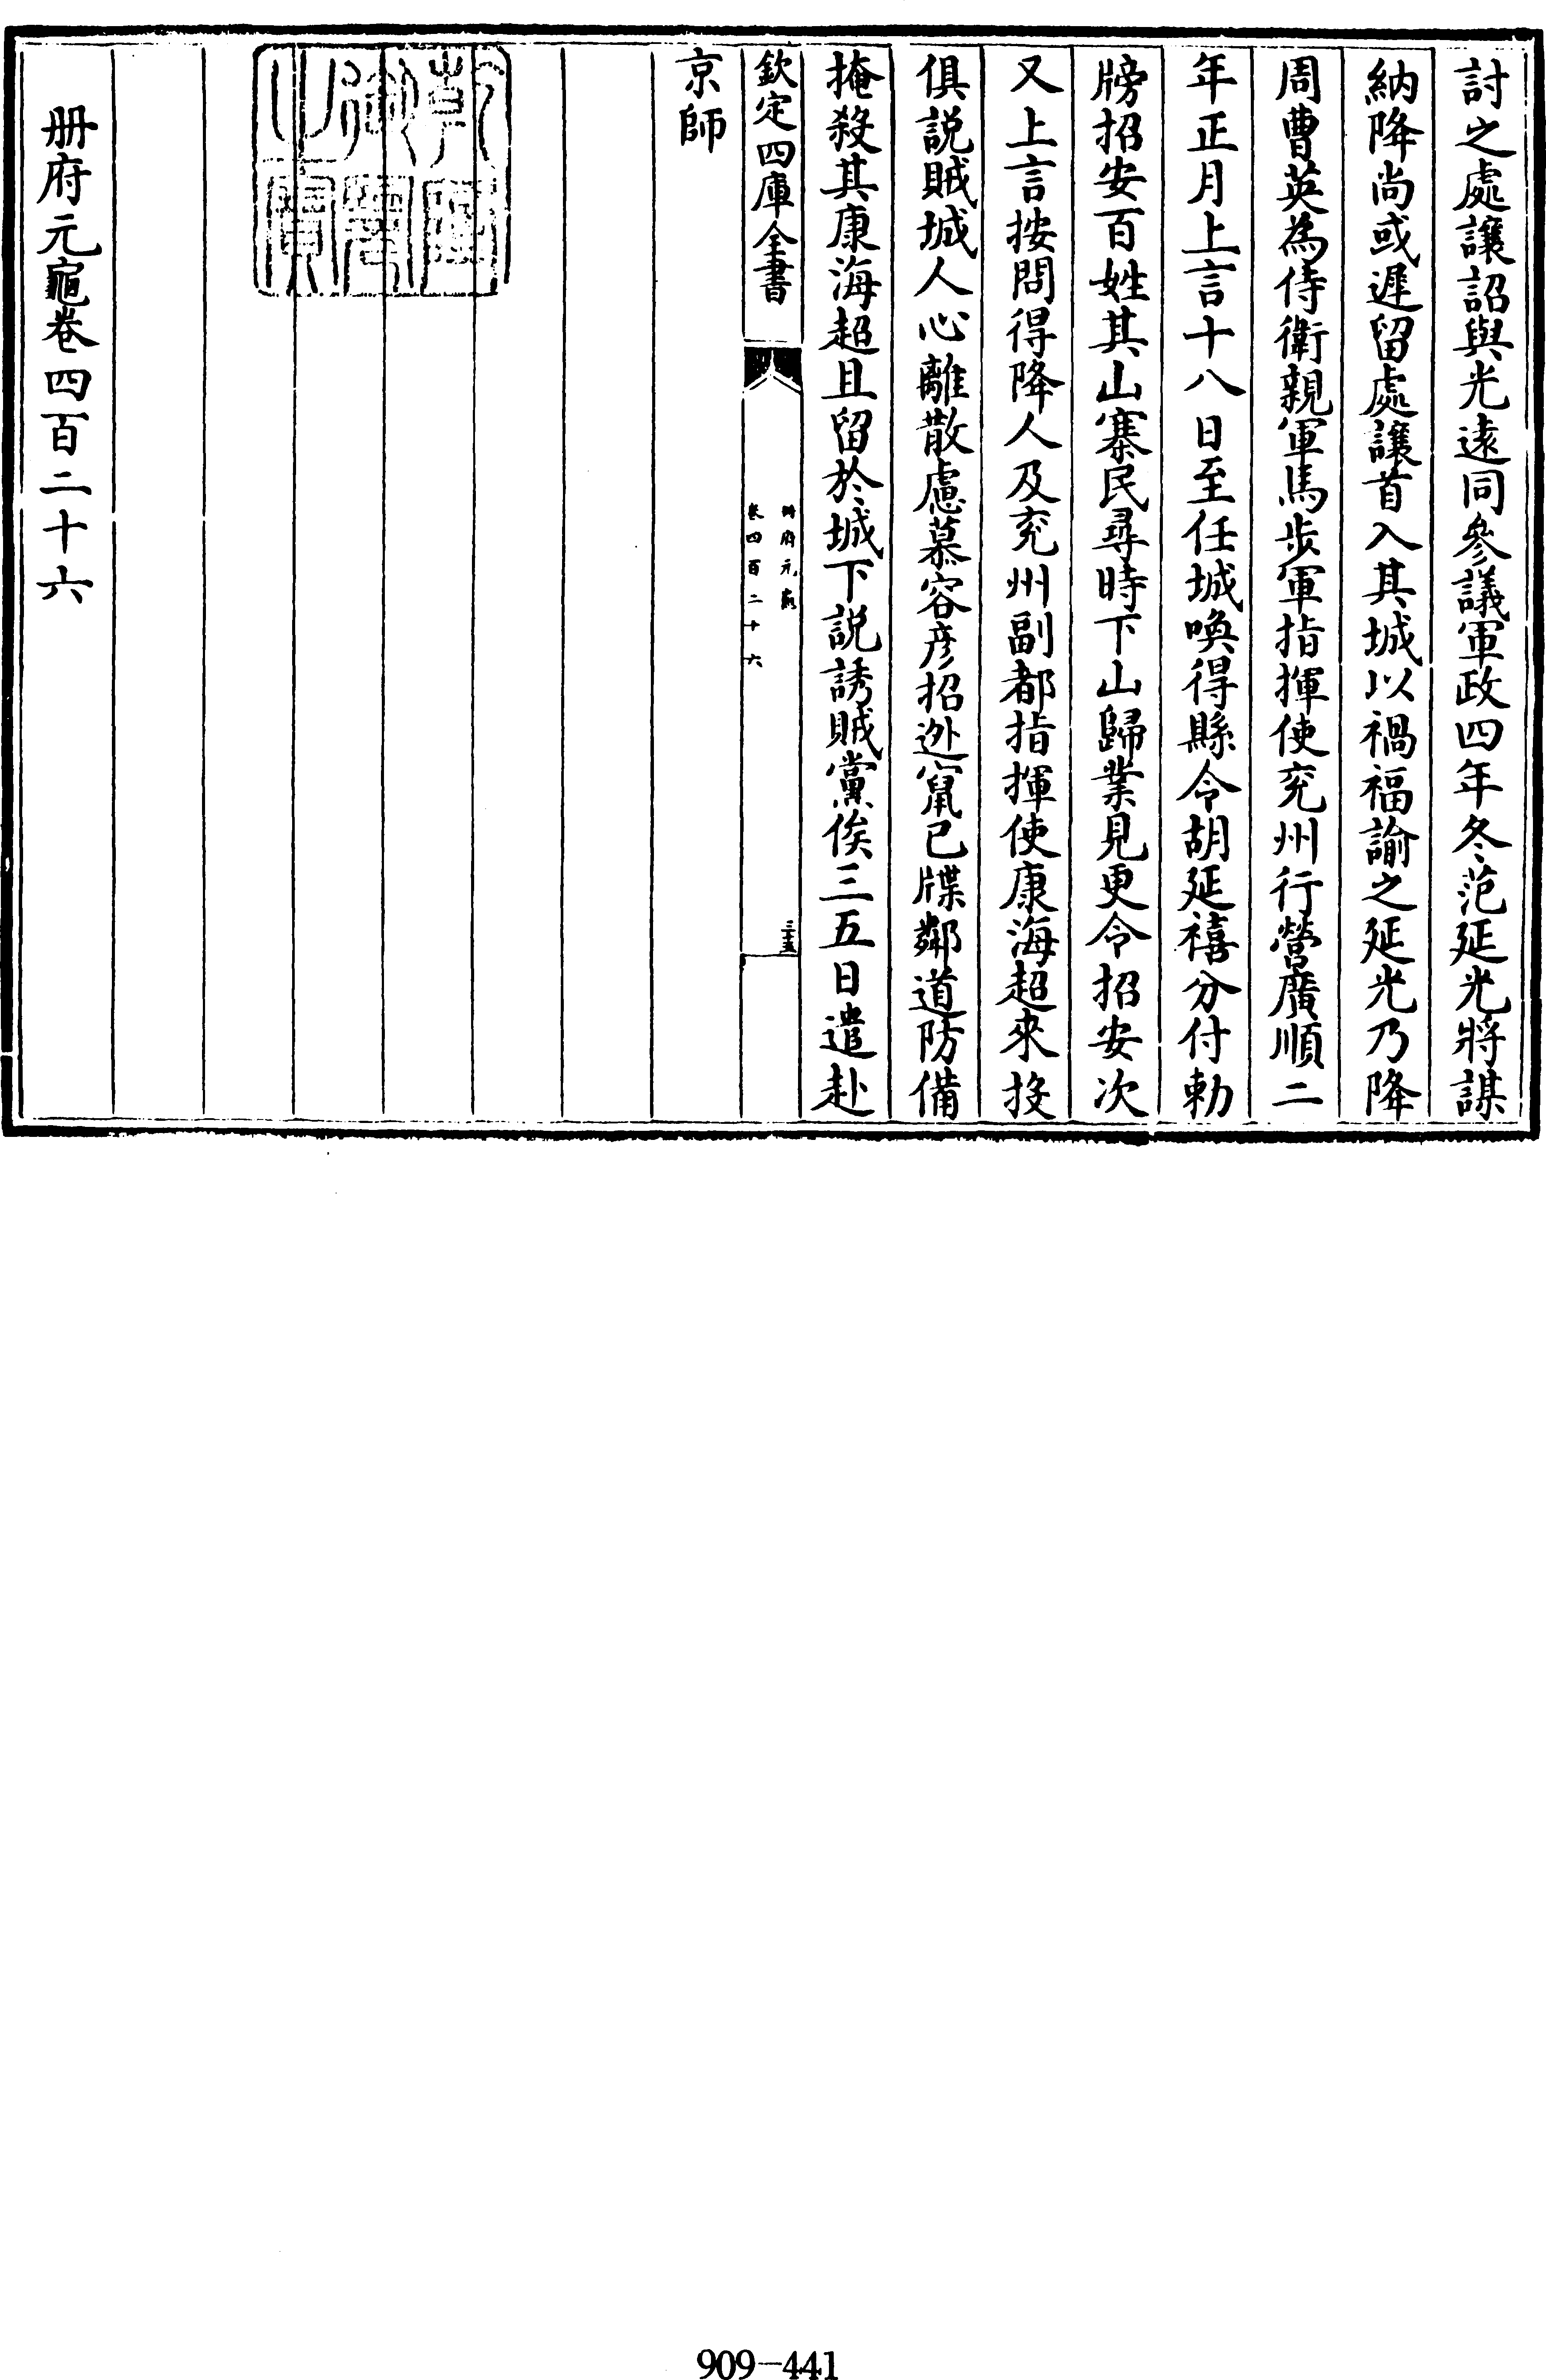 討之處讓詔與光遠同參議軍政四年冬范延光將謀
納降尚或遲留處讓首入其城以禍福諭之延光乃降
周曹英為侍衛親軍馬步軍指揮使兖州行營廣順二
年正月上言十八日至任城喚得縣令胡延禧分付勅
牓招安百姓其山寨民尋時下山歸業見更令招安次
又上言按問得降人及兖州副都指揮使康海超來投
俱説賊城人心離散慮慕容彥招迯竄已牒鄰道防備
掩殺其康海超且留於城下説誘賊黨俟三五日遣赴
欽定四庫全書
册府元龜
卷四百二十六
三十五
京師
册府元龜卷四百二十六
909-441